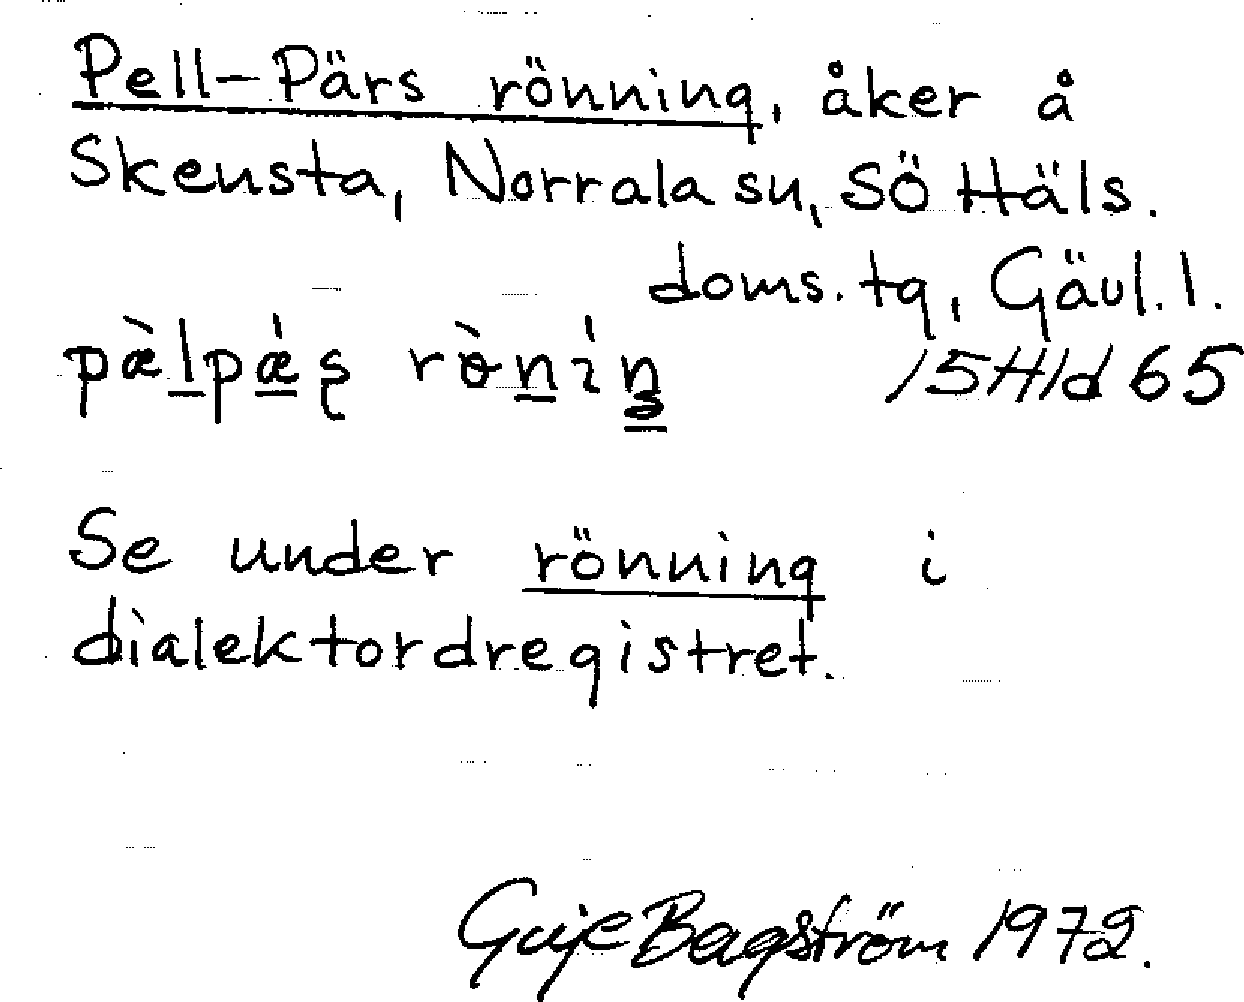 Pell-Pärs rönning, åker å
Skensta, Norrala sn, Sö Häls.
doms. tg, Gävl. l.
pæ̀lpǽş rònìŋ 15H1d 65
Se under rönning i
dialektordregistret.
1972.